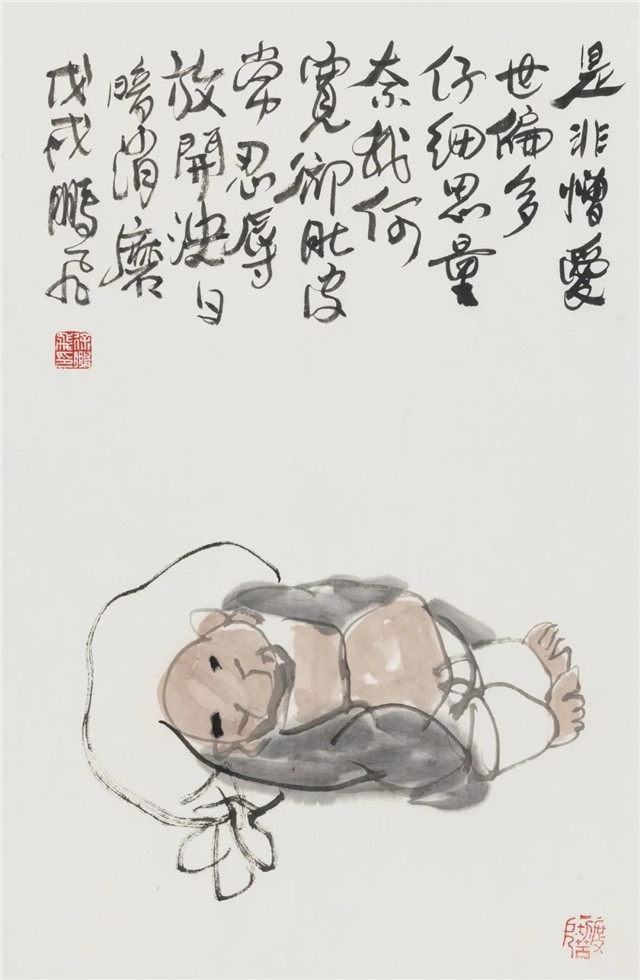 是非憎愛
世偏多
仔細思量
奈我何
寬卻肚皮
常忍辱
放開泱日
暗消磨
戊戌鵬飛
徐鵬飛印